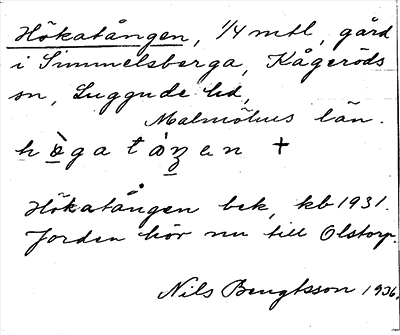 Hökatången, 1/4 mtl, gård
i Simmelsberga, Kågeröds
sn, Luggude hd,
Malmöhus län.
högatåŋen +
Hökatången bek, kb 1931.
Jorden hör nu till Olstorp.
Nils Bengtsson 1936.